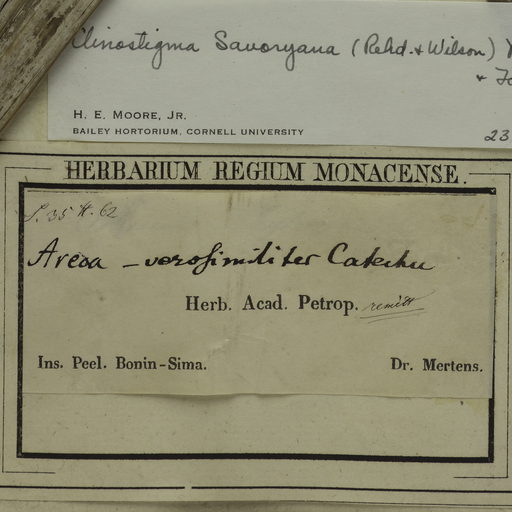 Clinostigma Savoryana (Rehd. & Wilson)
&
H. E. MOORE, JR.
BAILEY HORTORIUM, CORNELL UNIVERSITY
23
HERBARIUM REGIUM MONACENSE.
Areca - verosimiliter Catechu
Herb. Acad. Petrop. remitt
Ins. Peel. Bonin-Sima.
Dr. Mertens.